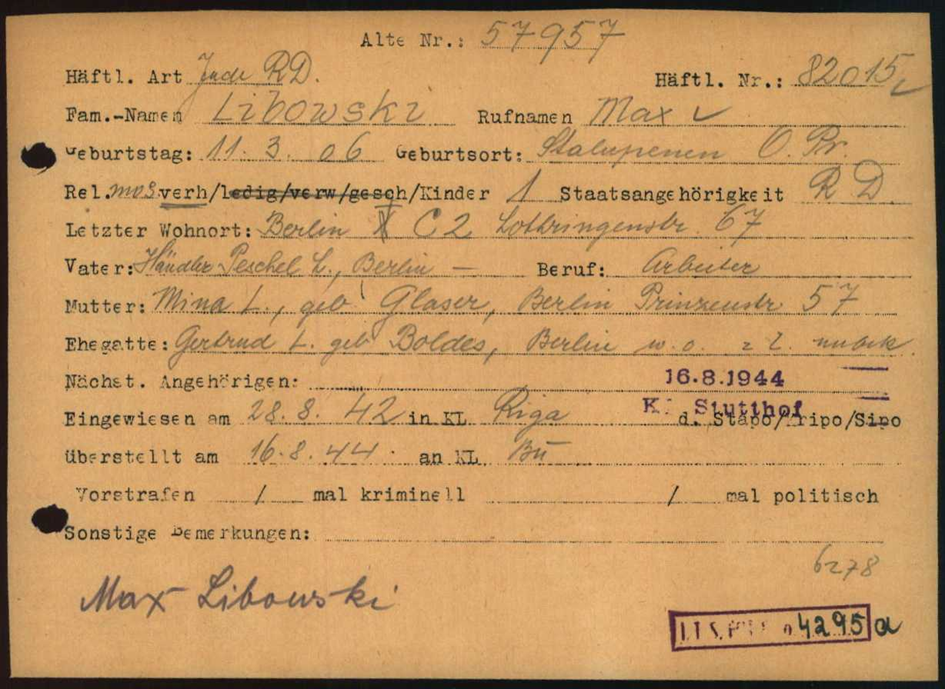 Alte Nr.: 57957
Häftl. Art Jude RD. Häftl. Nr.: 82015
Fam.-Namen Libowski Rufnamen Max
Geburtstag: 11. 3. 06 Geburtsort: Stalupenen O. Pr.
Rel. mos. verh/ledig/verw/gesch/Kinder 1 Staatsangehörigkeit RD
Letzter Wohnort: Berlin C2 Lothringenstr. 67
Vater: Händler Peschel L., Berlin – Beruf: Arbeiter
Mutter: Mina L., geb Glaser, Berlin Prinzenstr 57
Ehegatte: Gertrud L. geb Boldes, Berlin w.o. z Z. unbek.
Nächst. Angehörigen:
16.8.1944
Eingewiesen am 28. 8. 42 in KL Riga d. Stapo/Kripo/Sipo
K. Stutthof
überstellt am 16. 8. 44. an KL Bu
Vorstrafen / mal kriminell / mal politisch
Sonstige Bemerkungen:
6278
Max Libowski
I.T.S. 4295a